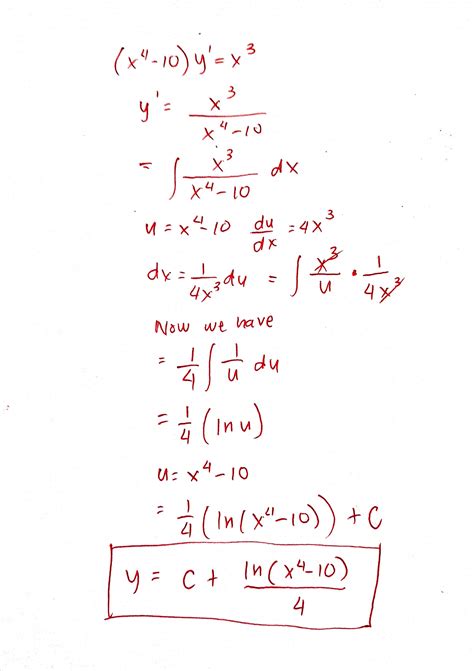 (x⁴-10) y' = x³
y' = x³/(x⁴-10)
= ∫ x³/(x⁴-10) dx
u = x⁴-10 du/dx = 4x³
dx = 1/(4x³) du = ∫ x³/u · 1/(4x³)
Now we have
= 1/4 ∫ 1/u du
= 1/4 (ln u)
u = x⁴-10
= 1/4 (ln(x⁴-10)) + C
y = C + ln(x⁴-10)/4